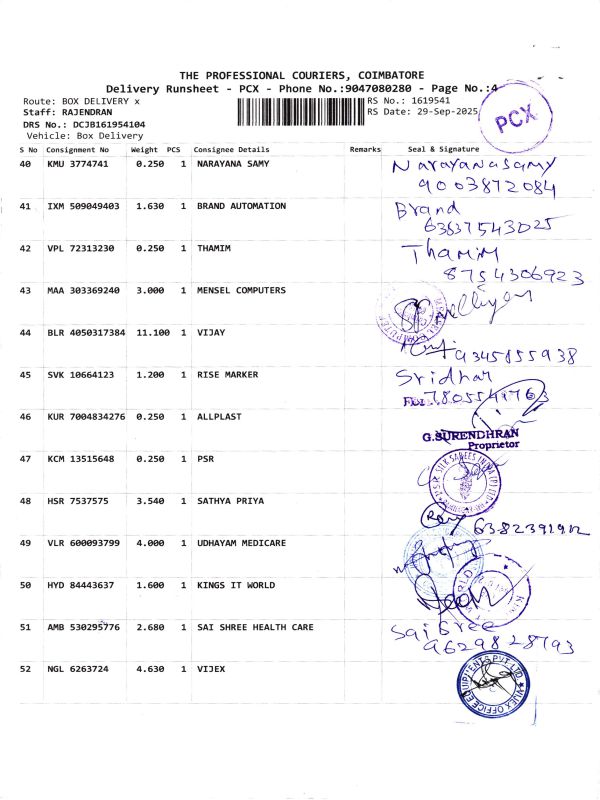 THE PROFESSIONAL COURIERS, COIMBATORE
Delivery Runsheet - PCX - Phone No.:9047080280 - Page No.:4
Route: BOX DELIVERY x
RS No.: 1619541
Staff: RAJENDRAN
RS Date: 29-Sep-2025
DRS No.: DCJB161954104
Vehicle: Box Delivery
PCX
S No Consignment No Weight PCS Consignee Details Remarks Seal & Signature
40 KMU 3774741 0.250 1 NARAYANA SAMY Narayanasamy
9003872084
41 IXM 509049403 1.630 1 BRAND AUTOMATION Brand
63637543025
42 VPL 72313230 0.250 1 THAMIM Thamim
8754306923
43 MAA 303369240 3.000 1 MENSEL COMPUTERS
44 BLR 4050317384 11.100 1 VIJAY
9345855938
45 SVK 10664123 1.200 1 RISE MARKER Sridhar
46 KUR 7004834276 0.250 1 ALLPLAST
G.SURENDHRAN
Proprietor
47 KCM 13515648 0.250 1 PSR
48 HSR 7537575 3.540 1 SATHYA PRIYA
49 VLR 600093799 4.000 1 UDHAYAM MEDICARE
50 HYD 84443637 1.600 1 KINGS IT WORLD
51 AMB 530295776 2.680 1 SAI SHREE HEALTH CARE Sai Sree
9629828793
52 NGL 6263724 4.630 1 VIJEX
VIJEX OFFICE EQUIPMENTS PVT LTD